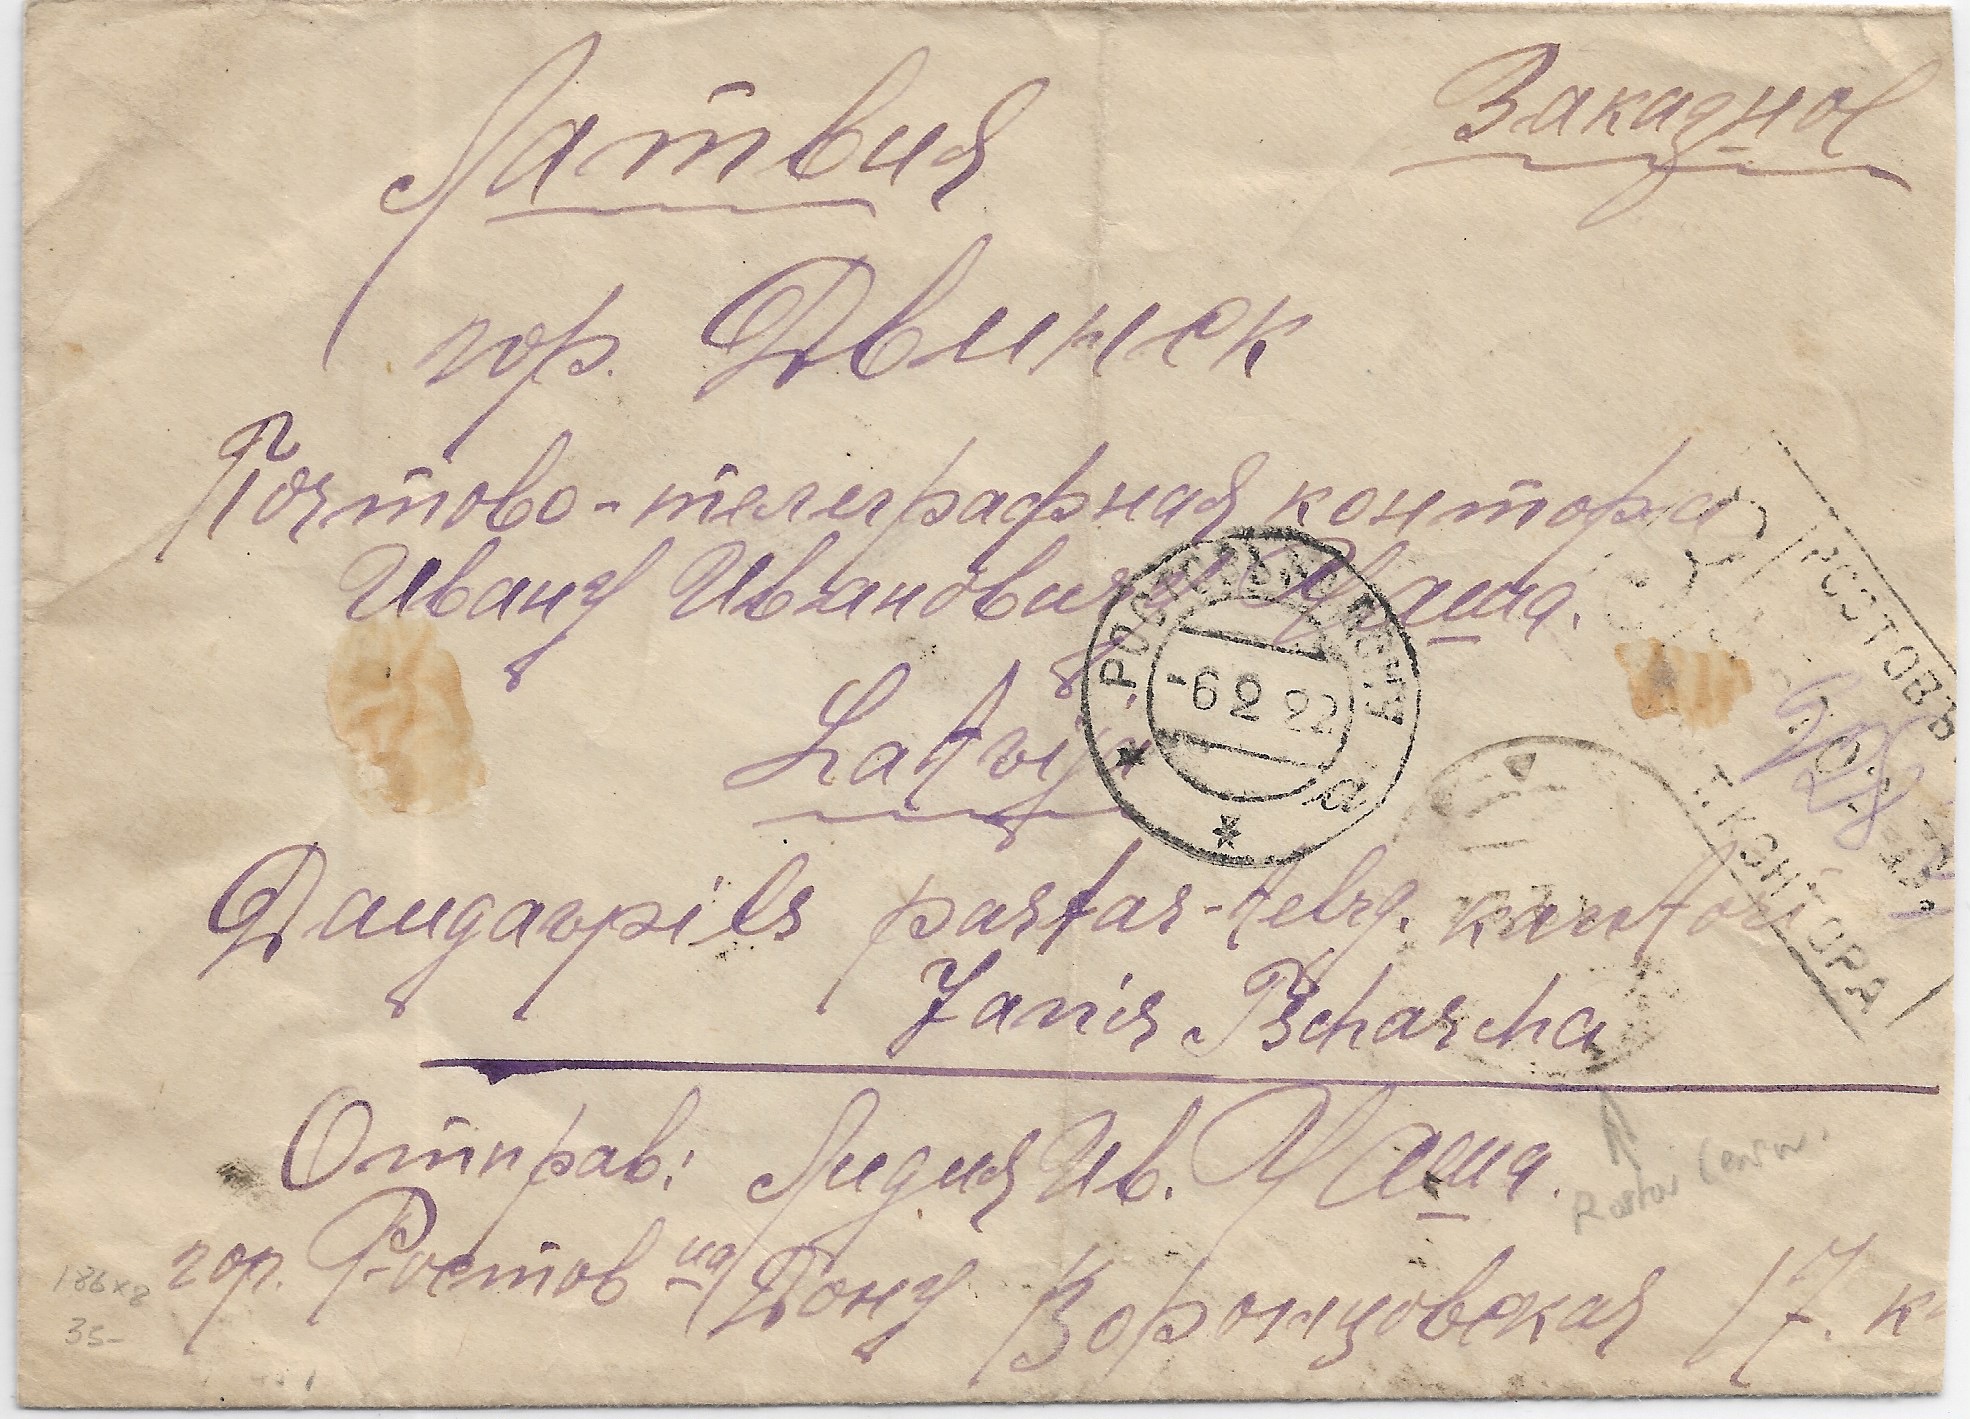 Закадное
Латвия
гор. Двинск
Почтово-телеграфная контора
Ивану Ивановичу Чаша.
Latvija
Daugavpils pastas-telgr. kantori
Janis Tschascha
Отправ: Лидия Ив. Чаша.
гор. Ростов на Дону Воронцовская 17. к
-6 2 22
а
РОСТОВЪ
Т. КОНТОРА
Rostov Censor.
186x8
35-